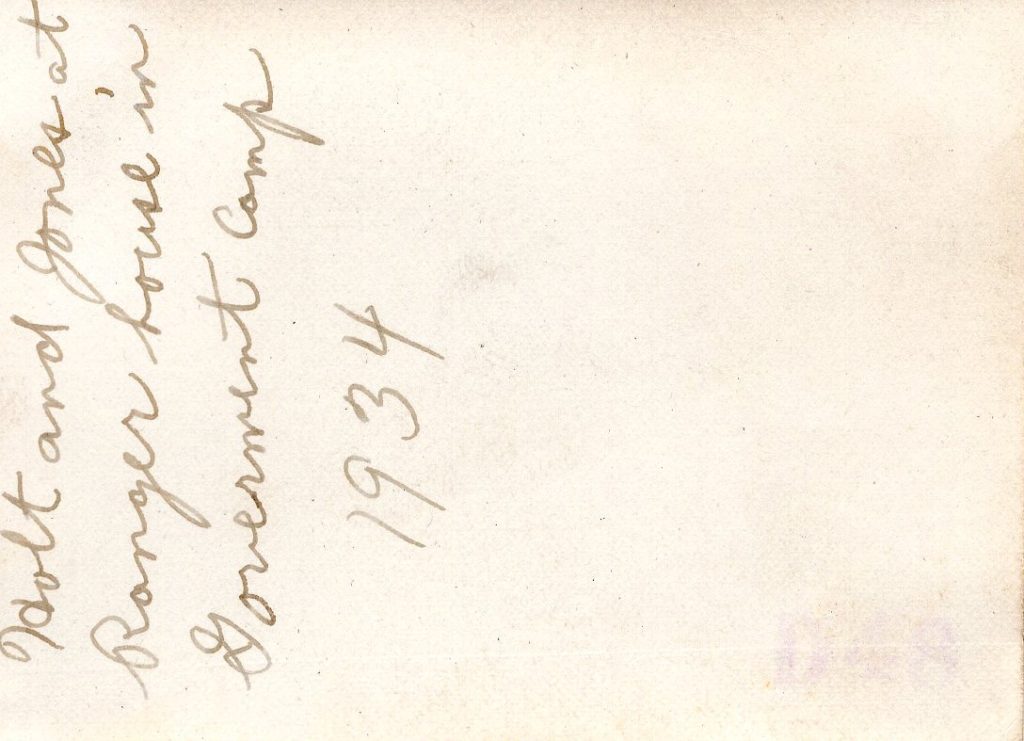 Holt and Jones at
Ranger house in
Government Camp
1934